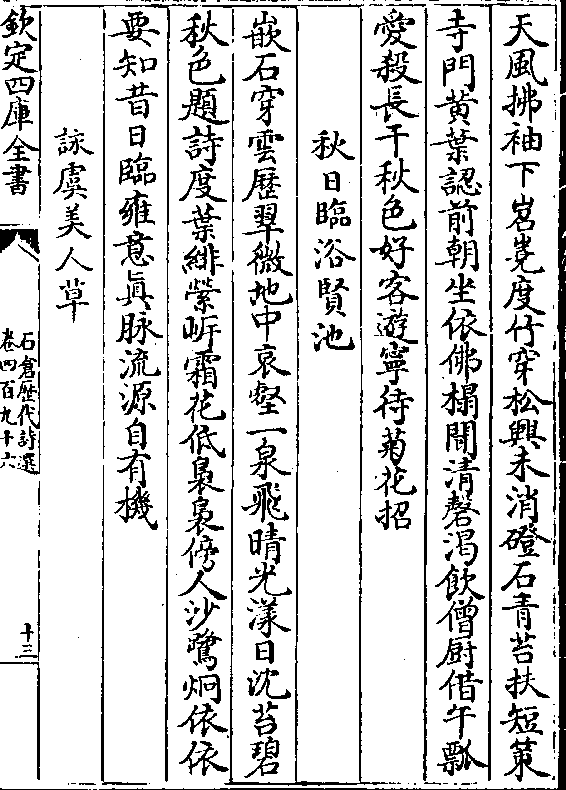 天風拂袖下岧嶤度竹穿松興未消磴石青苔扶短策
寺門黄葉認前朝坐依佛榻聞清磬渴飲僧厨借午瓢
愛殺長干秋色好客遊寧待菊花招
秋日臨浴賢池
嵌石穿雲歴翠微地中哀壑一泉飛晴光漾日沈苔碧
秋色題詩度葉緋縈㟁霜花低裊裊傍人沙鷺炯依依
要知昔日臨雍意眞脉流源自有機
詠虞美人草
欽定四庫全書
石倉歴代詩選
卷四百九十六
十三